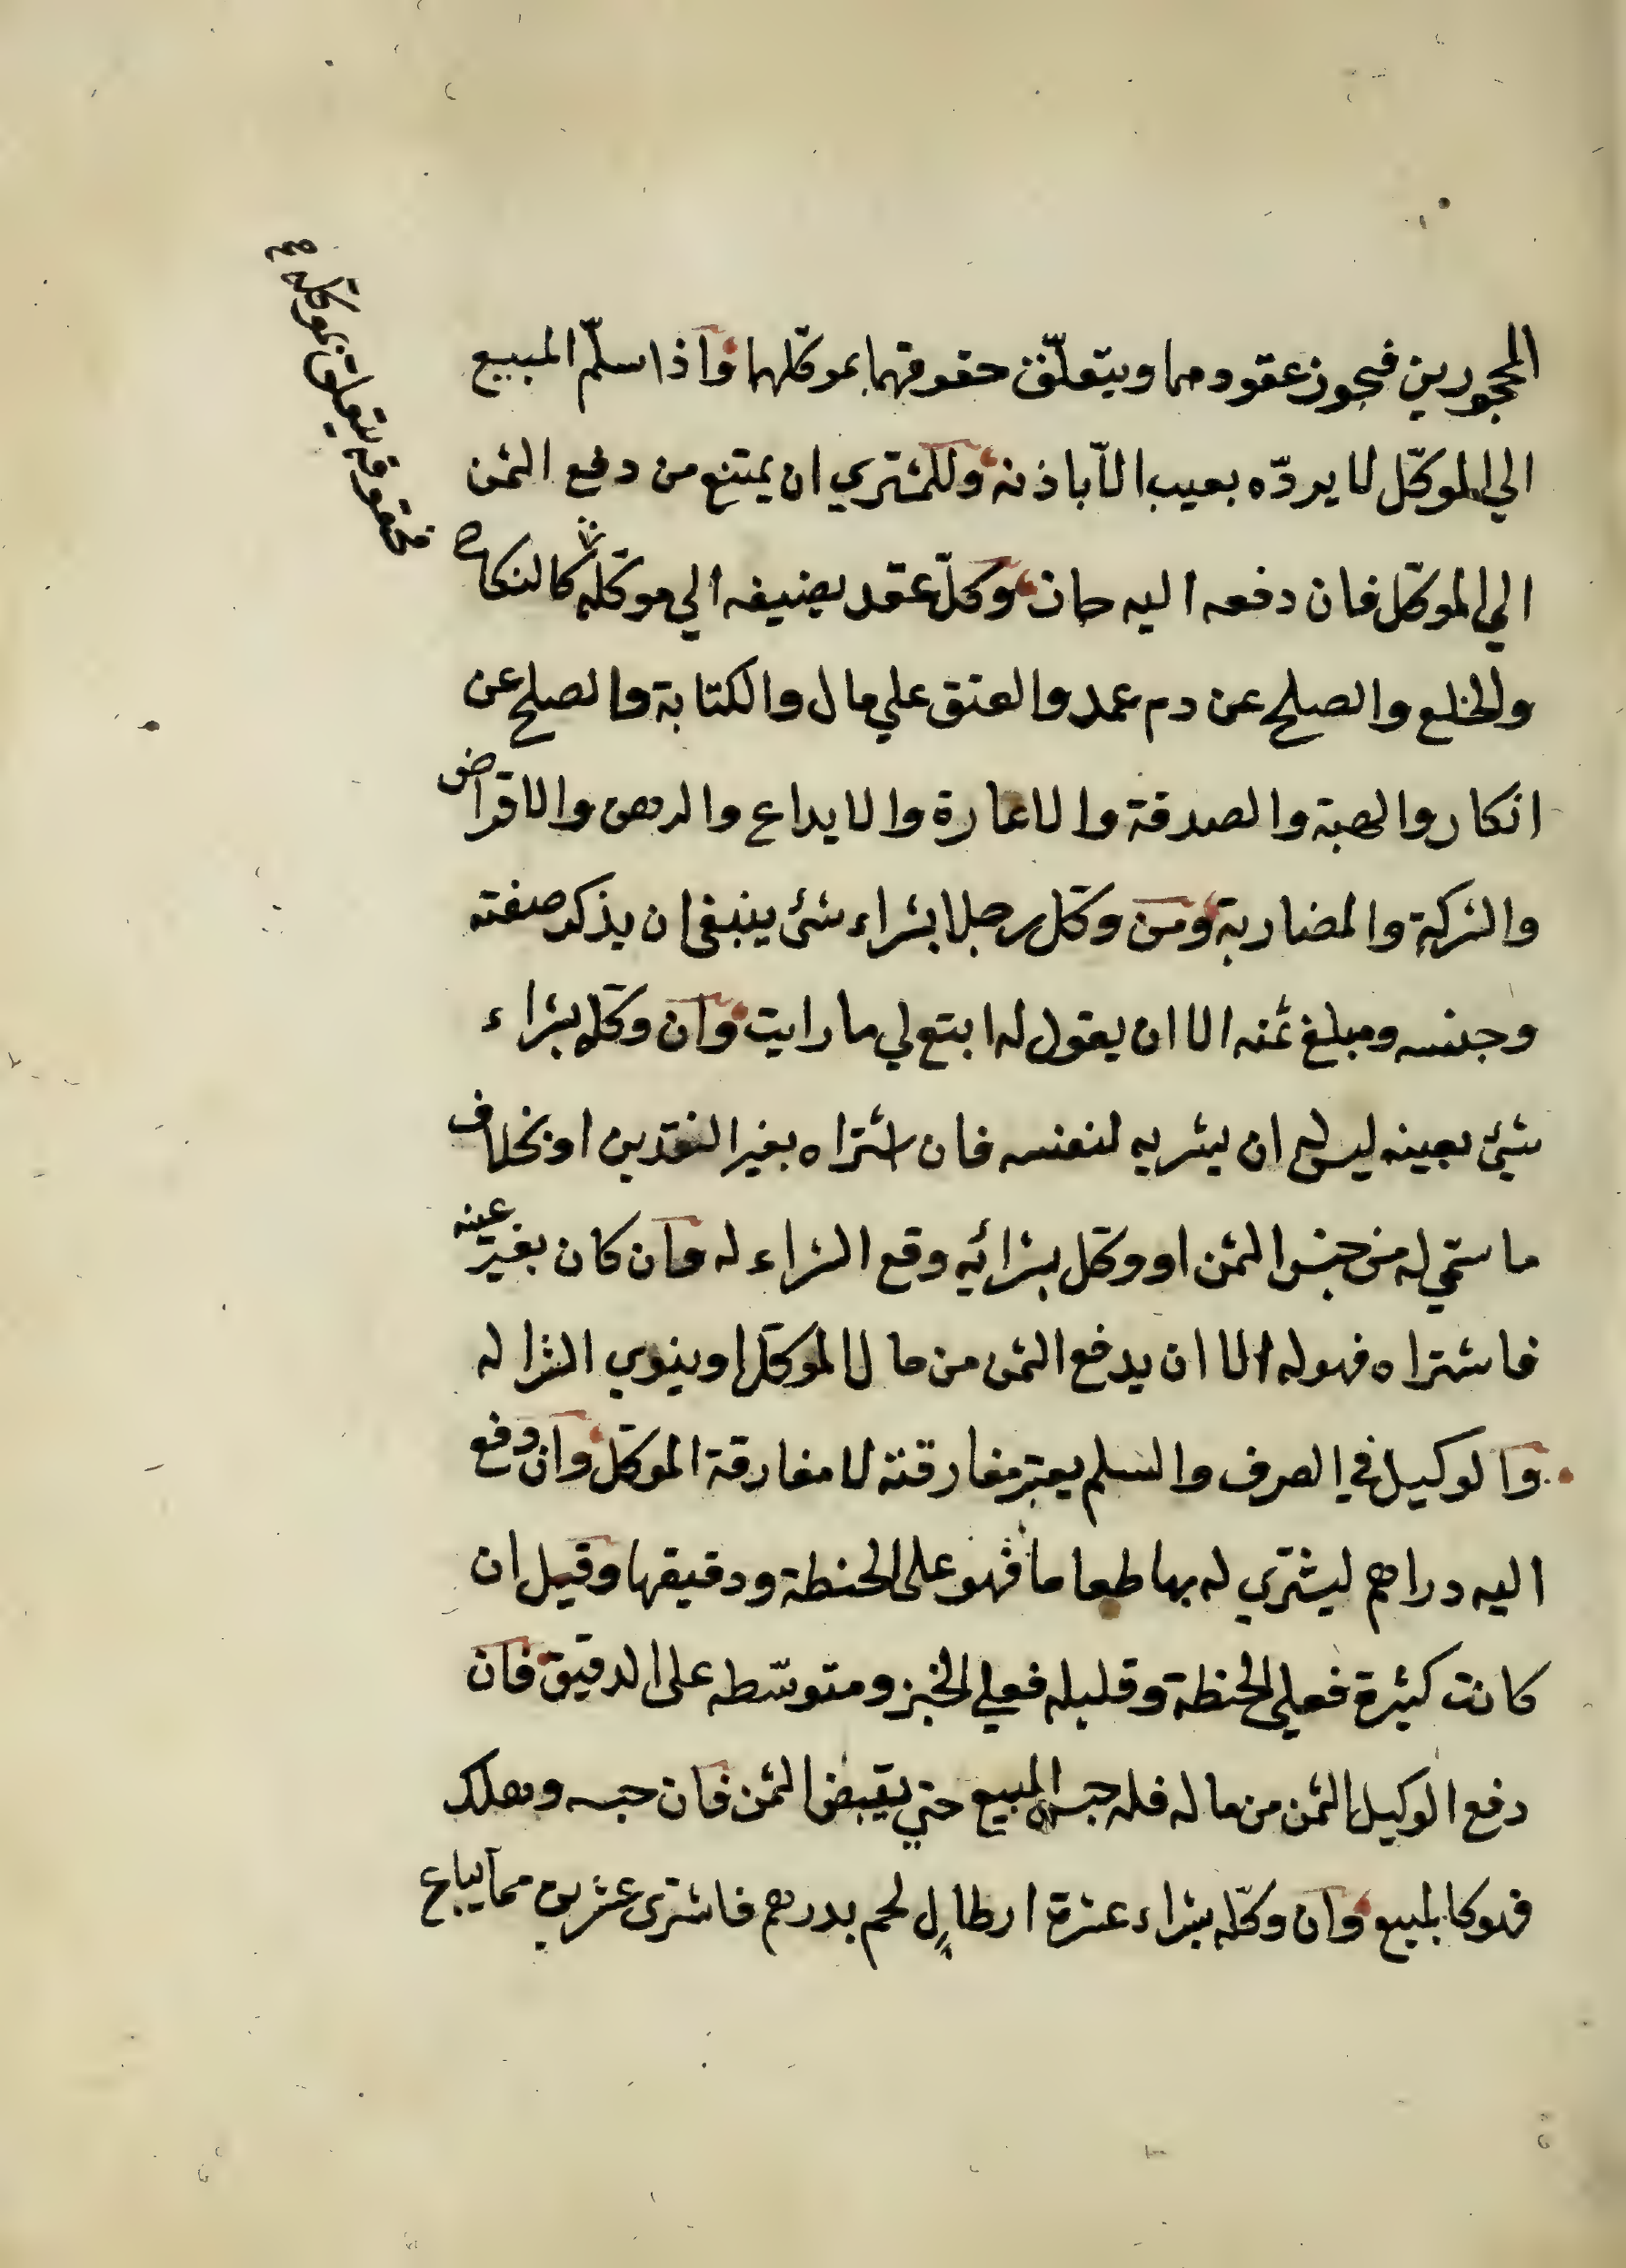 المحجورين فيجوز عقودهما ويتعلّق حقوقهما بموكّلهما واذا سلّم المبيع
الي الموكّل لا يردّه بعيب الّا باذنه وللمشتري ان يمتنع من دفع الثمن
الي الموكّل فان دفعه اليه جاز وكلّ عقد يضيفه الي موكّله كالنكاح
والخلع والصلح عن دم عمد والعتق علي مال والكتابة والصلح عن
انكار والهبة والصدقة والاعارة والايداع والرهن والاقراض
والشركة والمضاربة ومن وكّل رجلا بشراء شئ ينبغي ان يذكر صفته
وجنسه ومبلغ ثمنه الا ان يقول له ابتع لي ما رايت وان وكّله بشراء
شيئ بعينه ليس له ان يشتريه لنفسه فان اشتراه بغير النقدين او بخلاف
ما سمّي له من جنس الثمن او وكّل بشرائه وقع الشراء له وان كان بغير عينه
فاشتراه فهو له الا ان يدفع الثمن من مال الموكّل او ينوي الشرا له
والوكيل في الصرف والسلم يعتبر مفارقته لا مفارقة الموكّل وان دفع
اليه دراهم ليشتري له بها طعاما فهو على الحنطة ودقيقها وقيل ان
كانت كثيرة فعلي الحنطة وقليله فعلي الخبز ومتوسّطه على الدقيق فان
دفع الوكيل الثمن من ماله فله حبس المبيع حتي يقبض الثمن فان حبسه وهلك
فهو كالمبيع وان وكّله بشراء عشرة ارطال لحم بدرهم فاشترى عشرين مما يباع
فحقوقه يتعلق بموكّله